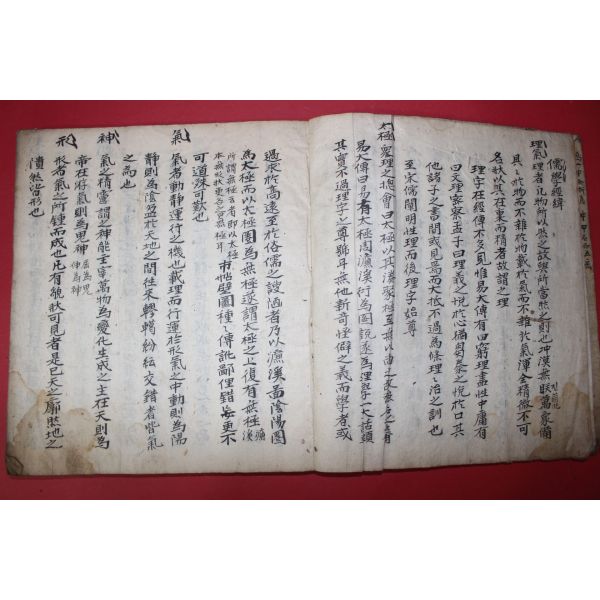 儒學經緯
理氣 理者凡物所以然之故與所當然之則也冲漠無眹萬象備
具於物而不雜於物載於氣而不雜於氣渾全精微不可
名狀以其在東而精者故謂之理
理字在經傳不多見惟易大傳有曰窮理盡性中庸有
曰文理密察孟子曰理義之悅於心猶芻豢之悅於口其
他諸子之書間或見焉而大抵不過爲條理之治之訓也
至宋儒闡明性理而後理字始尊
太極 衆理之總會曰太極以其湊聚極至
易大傳曰易有太極周濂溪衍爲圖說遂爲理學一大話頭
其實不過理字之尊號耳無他新奇怪僻之義而學者或
過求於高遠至於俗儒之謏陋者乃以濂溪畵陰陽圈
爲太極而以太極圈爲無極遂謂太極之上復有無極 濂溪
所謂無極云者即以太極本無形狀更 無極耳 市帖壁圖種種傳訛鄙俚錯 更不
可道殊可歎也
氣 氣者動靜運行之機也載理而行運於形氣之中動則爲陽
靜則爲陰盈於天地之間往來轇轕紛紜交錯者皆氣
之爲也
神 氣之精靈謂之神能主宰萬物爲變化生成之主在天則爲
帝在於氣則爲鬼神 屈爲鬼伸爲神
形 形者氣之所鍾而成也凡有貌狀可見者是已天之廓然地之
隤然皆形也